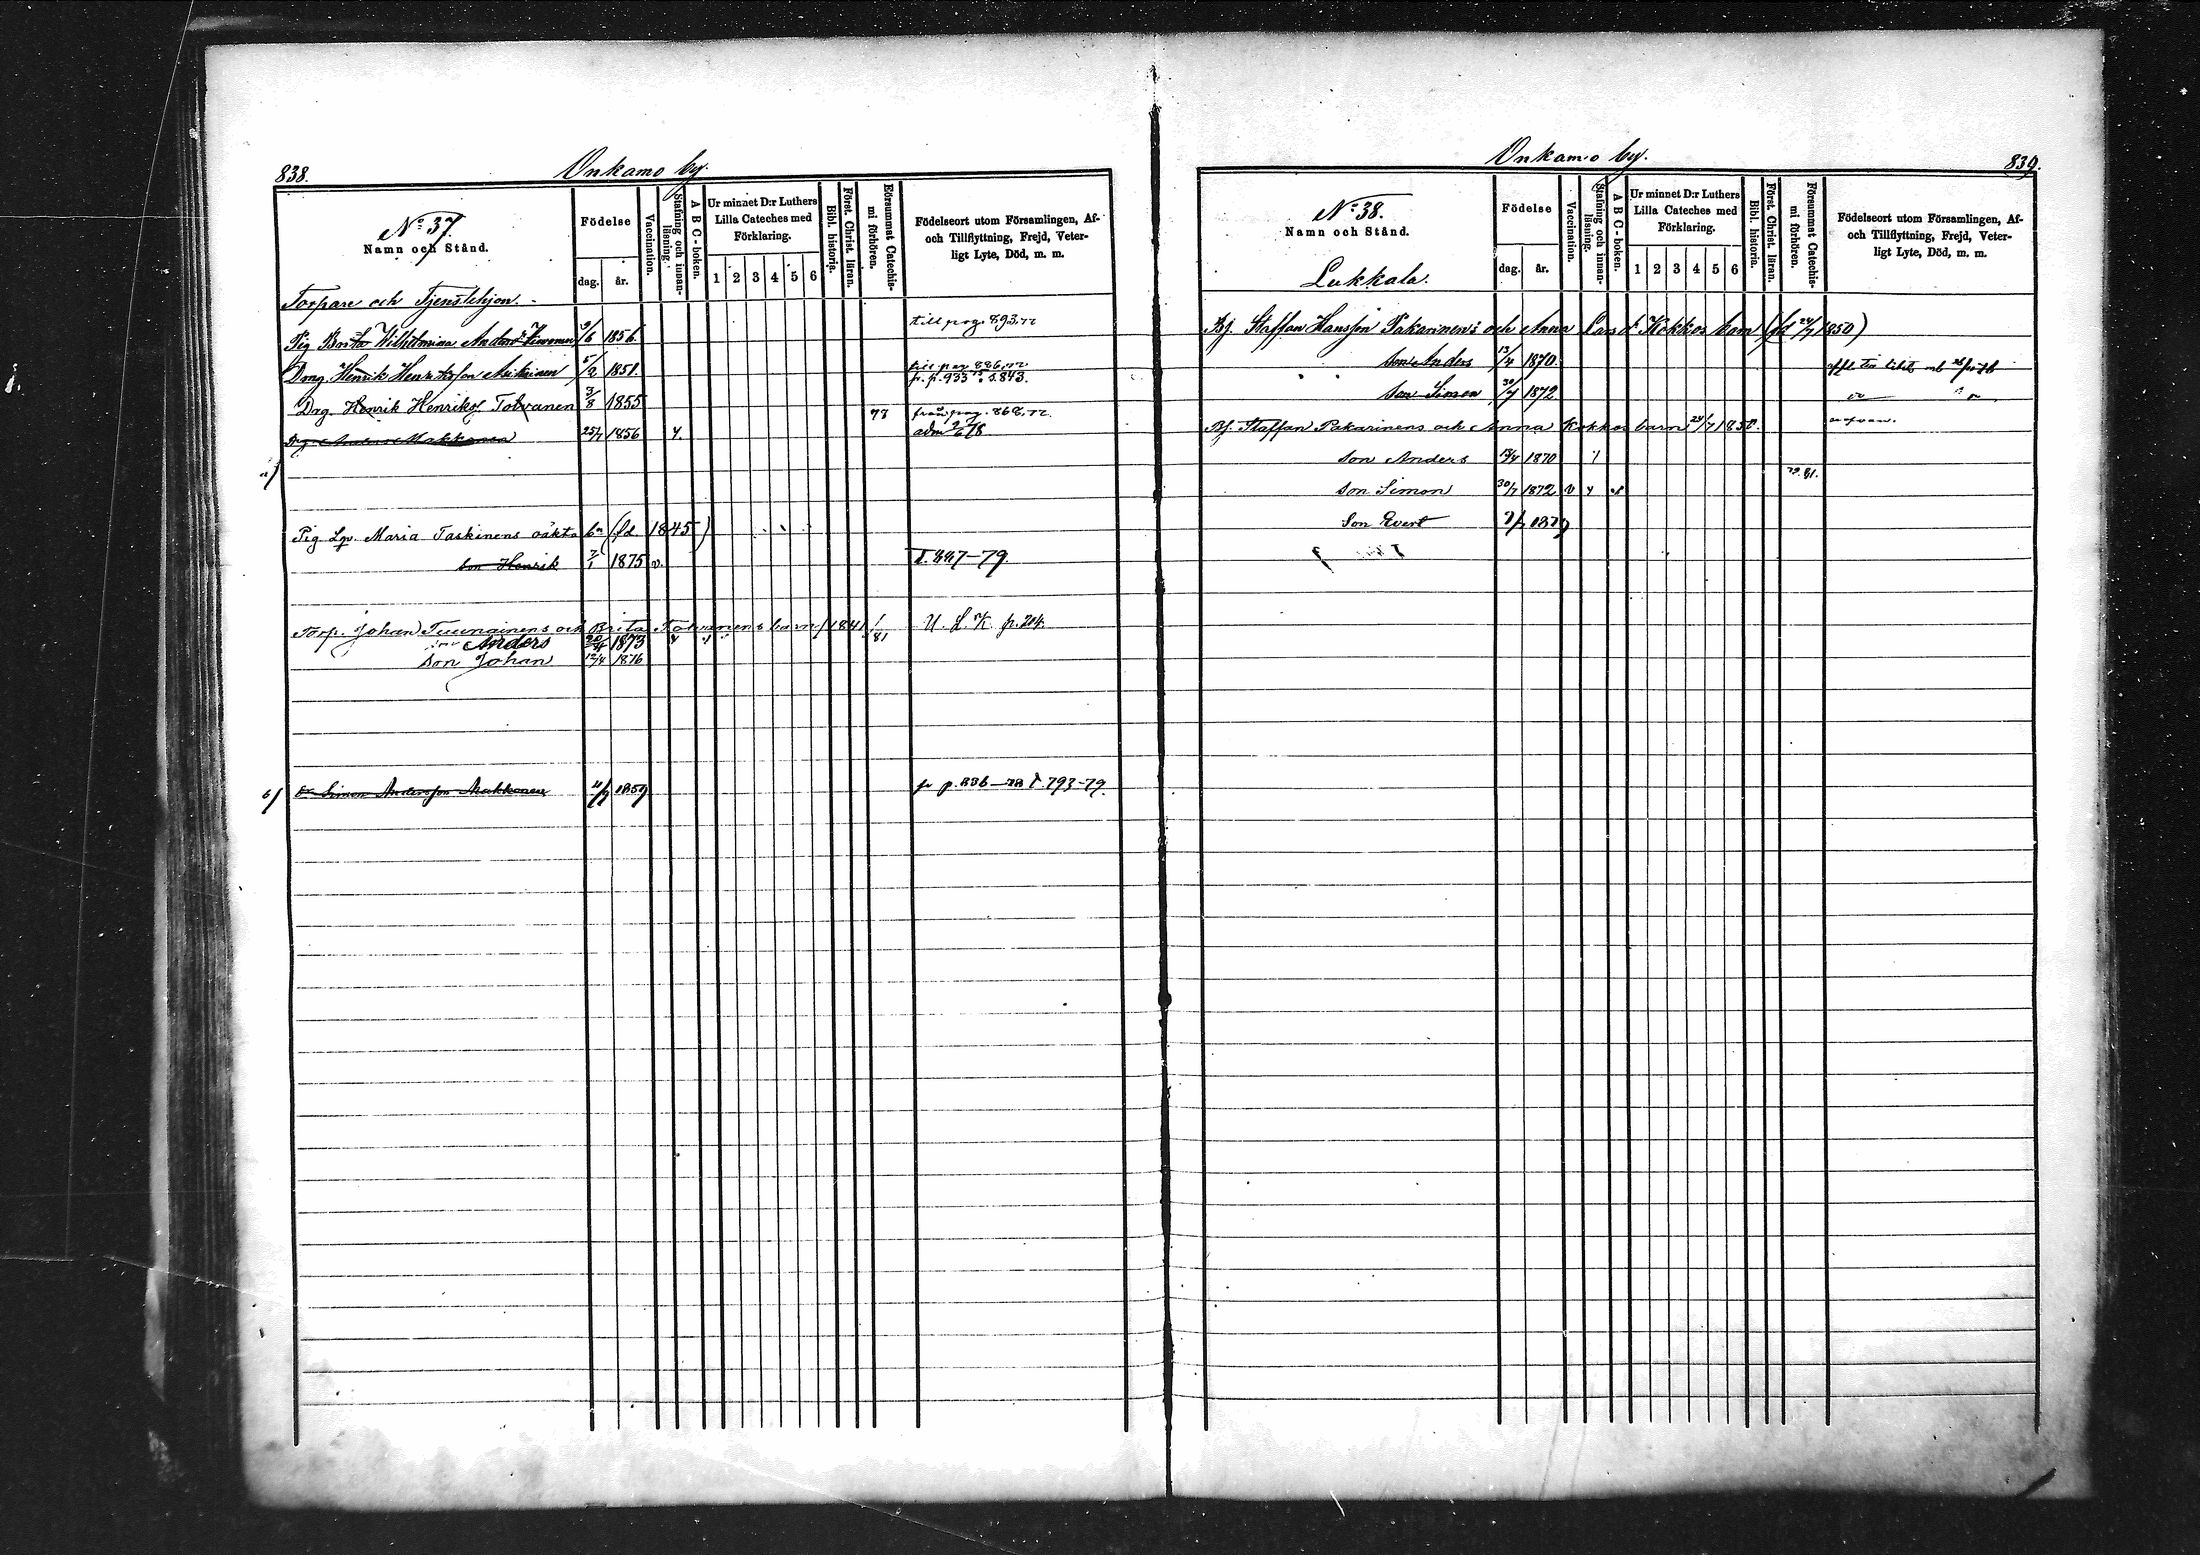 838. Onkamo by.
No 37.
Namn och Stånd.
Födelse
dag. år.
Vaccination.
Stafning och innan-läsning.
A B C-boken.
Ur minnet D:r Luthers Lilla Cateches med Förklaring.
1 2 3 4 5 6
Bibl. historia.
Först. Christ. läran.
Försummat Catechis-mi förhören.
Födelseort utom Församlingen, Af- och Tillflyttning, Frejd, Veter-ligt Lyte, Död, m. m.
Torpare och Tjenstehjon.
Pig Brita Wilhelmina 9/6 1856. till pag 893.
Dreng. Henrik Henriksson 5/2 1851. till pag 886
f. p. 933 s. 843.
Drg. Henrik Henriks. Tolvanen 3/8 1855 77 från pag. 868.
Makkonen 25/7 1856 4. adm 2/6 78
a)
Pig Lp. Maria Taskinens oäkta bn (fd 1845)
son Henrik 7/1 1875 v. T. 447-79.
Torp. Johan Tuunainens och Brita Tolvanens barn f 1841 1/81 U. L. K. p. 204.
son Anders 1873
Son Johan 12/4 1876
b) Simon Andersson Makkonen 11/9 1859 fr p. 836-78 T. 793-79.
Onkamo by. 839.
No 38.
Namn och Stånd.
Lukkala.
Födelse
dag. år.
Vaccination.
Stafning och innan-läsning.
A B C-boken.
Ur minnet D:r Luthers Lilla Cateches med Förklaring.
1 2 3 4 5 6
Bibl. historia.
Först. Christ. läran.
Försummat Catechis-mi förhören.
Födelseort utom Församlingen, Af- och Tillflyttning, Frejd, Veter-ligt Lyte, Död, m. m.
Bj. Staffan Hansson Pakarinens och Anna Larsd:r Kokkos barn (fd 24/7 1850)
Son Anders 13/4 1870.
Son Simon 30/7 1872
Bj. Staffan Pakarinens och Anna Kokkos barn 24/7 1850.
Son Anders 13/4 1870
79. 81.
Son Simon 30/7 1872 v
Son Evert 1879